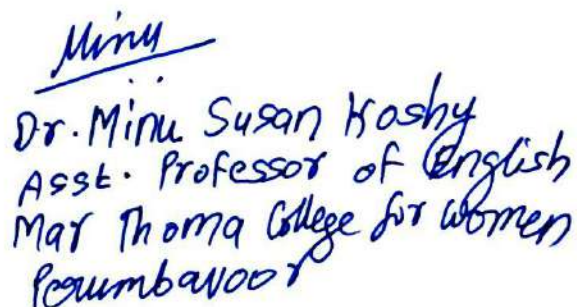 Minu
Dr. Minu Susan Koshy
Asst. Professor of English
Mar Thoma College for women
Perumbavoor